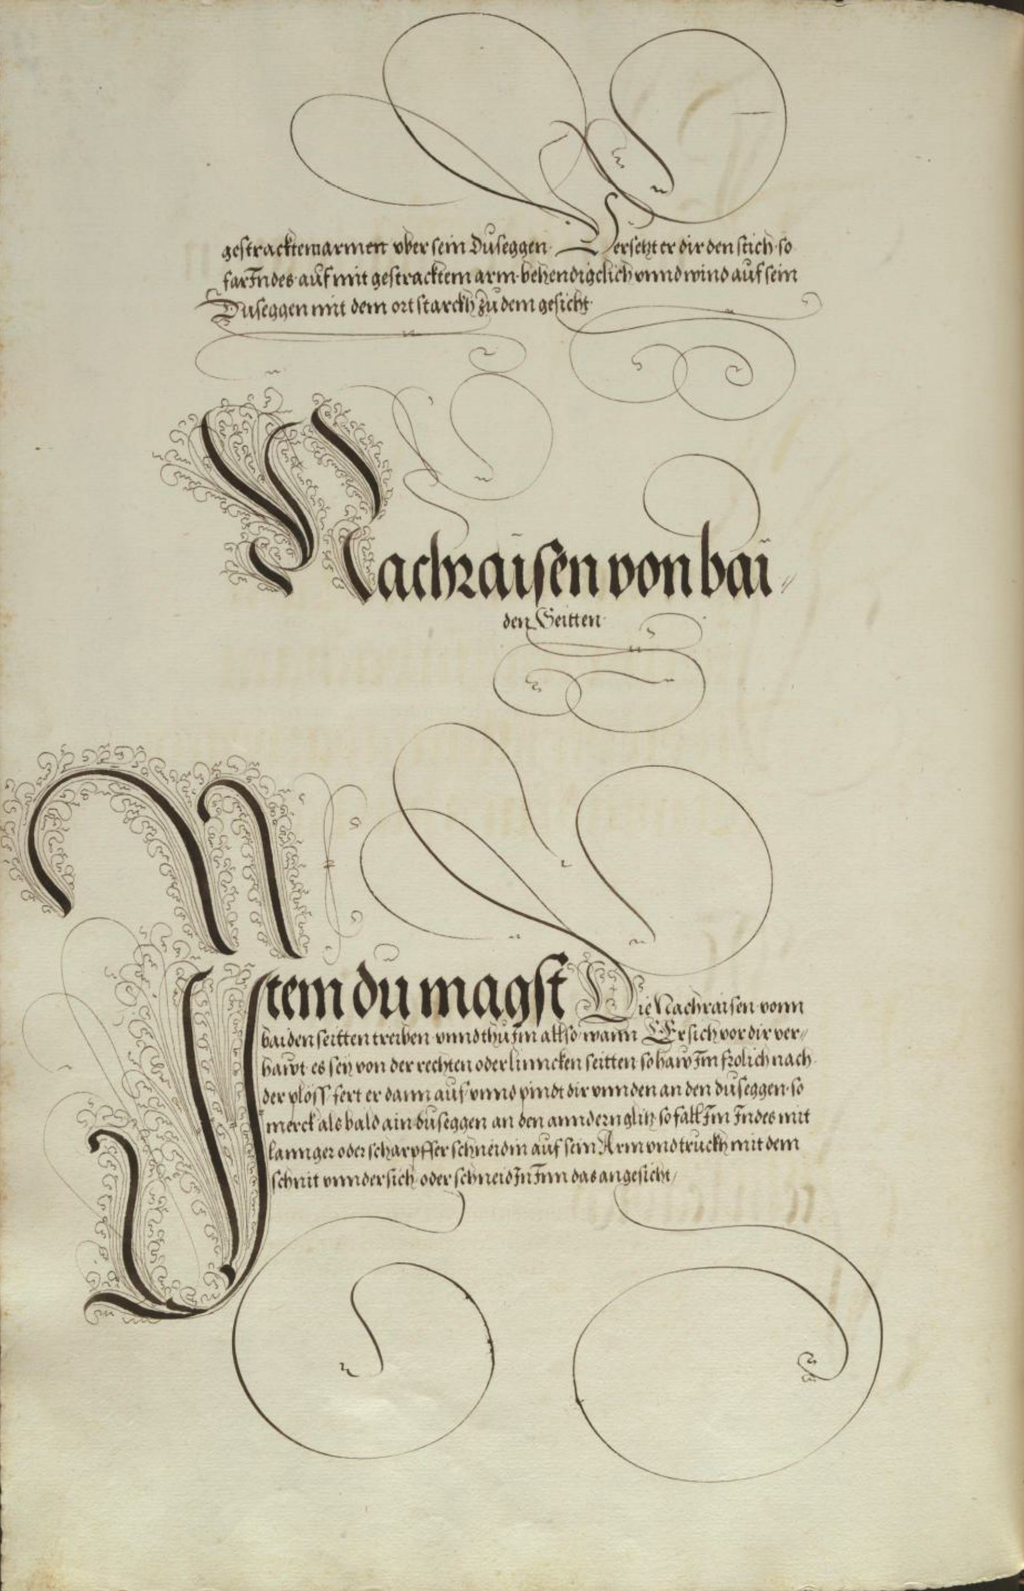 gestracktem armen vber sein Duseggen. Versetzt er dir den stich so
far Indes auf mit gestracktem arm behendigclich vnnd wind auf sein
Duseggen mit dem ort starckh zu dem gesicht
Nachraisen von bai//
den Seitten
Item du magst Die Nachraisen vonn
baiden seitten treiben vnnd thu Im allso wann Er sich vor dir ver//
hawt es sey von der rechten oder linncken seitten so haw Im frolich nach
der plöss fert er dann auf vnnd pindt dir vnnden an den duseggen so
merck als bald ain duseggen an den anndern glitz so fall Im Indes mit
lannger oder scharpffer schneidin auf sein Arm vnd truckh mit dem
schnit vnndersich oder schneid In Inn das angesicht/